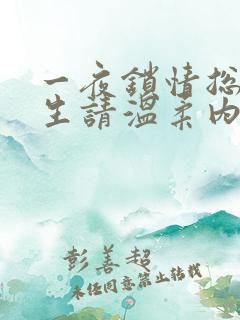 一夜鎖情总
生請溫柔内
彭善超
未经同意禁止转载